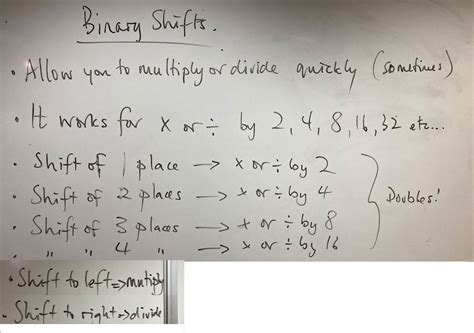 Binary Shifts.
• Allow you to multiply or divide quickly (sometimes)
• It works for x or ÷ by 2, 4, 8, 16, 32 etc...
• Shift of 1 place → x or ÷ by 2
• Shift of 2 places → x or ÷ by 4
• Shift of 3 places → x or ÷ by 8
Doubles!
• " " 4 " → x or ÷ by 16
• Shift to left => multiply
• Shift to right => divide